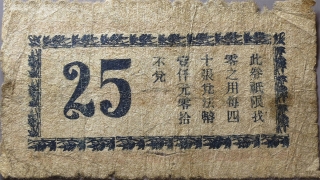 25
此券祇限找
零之用每四
十張兌法幣
壹仟元零拾
不兌